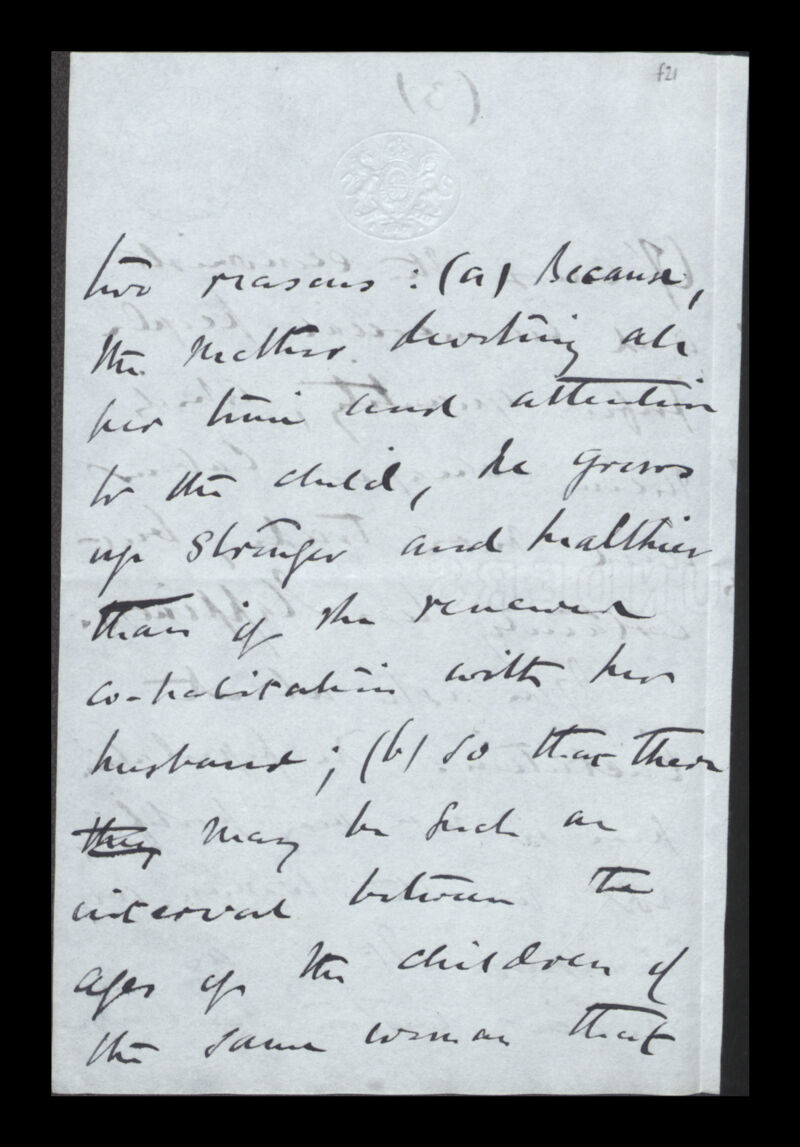 f21
two reasons : (a) Because,
the mother devoting all
her time and attention
to the child, he grows
up stronger and healthier
than if she renewed
co-habitation with her
husband ; (b) so that there
they may be such an
interval between the
ages of the children of
the same woman that